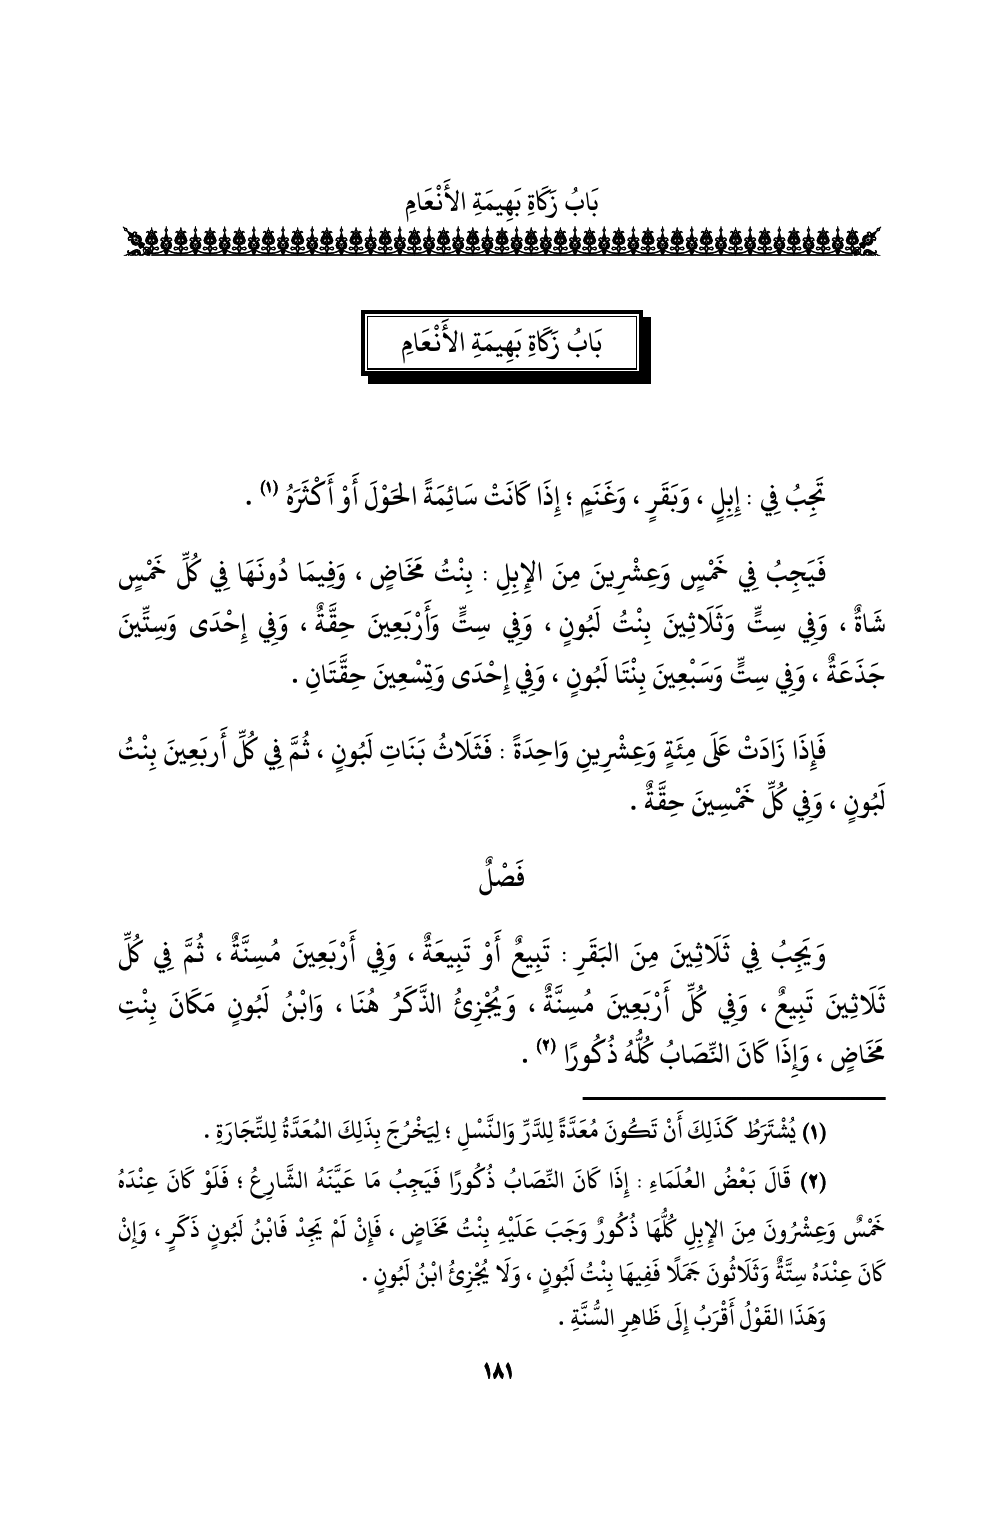 بَابُ زَكَاةِ بَهِيمَةِ الأَنْعَامِ
بَابُ زَكَاةِ بَهِيمَةِ الأَنْعَامِ
تَجِبُ فِي : إِبِلٍ ، وَبَقَرٍ ، وَغَنَمٍ ؛ إِذَا كَانَتْ سَائِمَةً الحَوْلَ أَوْ أَكْثَرَهُ (١) .
فَيَجِبُ فِي خَمْسٍ وَعِشْرِينَ مِنَ الإِبِلِ : بِنْتُ مَخَاضٍ ، وَفِيمَا دُونَهَا فِي كُلِّ خَمْسٍ
شَاةٌ ، وَفِي سِتٍّ وَثَلَاثِينَ بِنْتُ لَبُونٍ ، وَفِي سِتٍّ وَأَرْبَعِينَ حِقَّةٌ ، وَفِي إِحْدَى وَسِتِّينَ
جَذَعَةٌ ، وَفِي سِتٍّ وَسَبْعِينَ بِنْتَا لَبُونٍ ، وَفِي إِحْدَى وَتِسْعِينَ حِقَّتَانِ .
فَإِذَا زَادَتْ عَلَى مِئَةٍ وَعِشْرِينِ وَاحِدَةً : فَثَلَاثُ بَنَاتِ لَبُونٍ ، ثُمَّ فِي كُلِّ أَربَعِينَ بِنْتُ
لَبُونٍ ، وَفِي كُلِّ خَمْسِينَ حِقَّةٌ .
فَصْلٌ
وَيَجِبُ فِي ثَلَاثِينَ مِنَ البَقَرِ : تَبِيعٌ أَوْ تَبِيعَةٌ ، وَفِي أَرْبَعِينَ مُسِنَّةٌ ، ثُمَّ فِي كُلِّ
ثَلَاثِينَ تَبِيعٌ ، وَفِي كُلِّ أَرْبَعِينَ مُسِنَّةٌ ، وَيُجْزِئُ الذَّكَرُ هُنَا ، وَابْنُ لَبُونٍ مَكَانَ بِنْتِ
مَخَاضٍ ، وَإِذَا كَانَ النِّصَابُ كُلُّهُ ذُكُورًا (٢) .
(١) يُشْتَرَطُ كَذَلِكَ أَنْ تَكُونَ مُعَدَّةً لِلدَّرِّ وَالنَّسْلِ ؛ لِيَخْرُجَ بِذَلِكَ المُعَدَّةُ لِلتِّجَارَةِ .
(٢) قَالَ بَعْضُ العُلَمَاءِ : إِذَا كَانَ النِّصَابُ ذُكُورًا فَيَجِبُ مَا عَيَّنَهُ الشَّارِعُ ؛ فَلَوْ كَانَ عِنْدَهُ
خَمْسٌ وَعِشْرُونَ مِنَ الإِبِلِ كُلُّهَا ذُكُورٌ وَجَبَ عَلَيْهِ بِنْتُ مَخَاضٍ ، فَإِنْ لَمْ يَجِدْ فَابْنُ لَبُونٍ ذَكَرٍ ، وَإِنْ
كَانَ عِنْدَهُ سِتَّةٌ وَثَلَاثُونَ جَمَلًا فَفِيهَا بِنْتُ لَبُونٍ ، وَلَا يُجْزِئُ ابْنُ لَبُونٍ .
وَهَذَا القَوْلُ أَقْرَبُ إِلَى ظَاهِرِ السُّنَّةِ .
١٨١